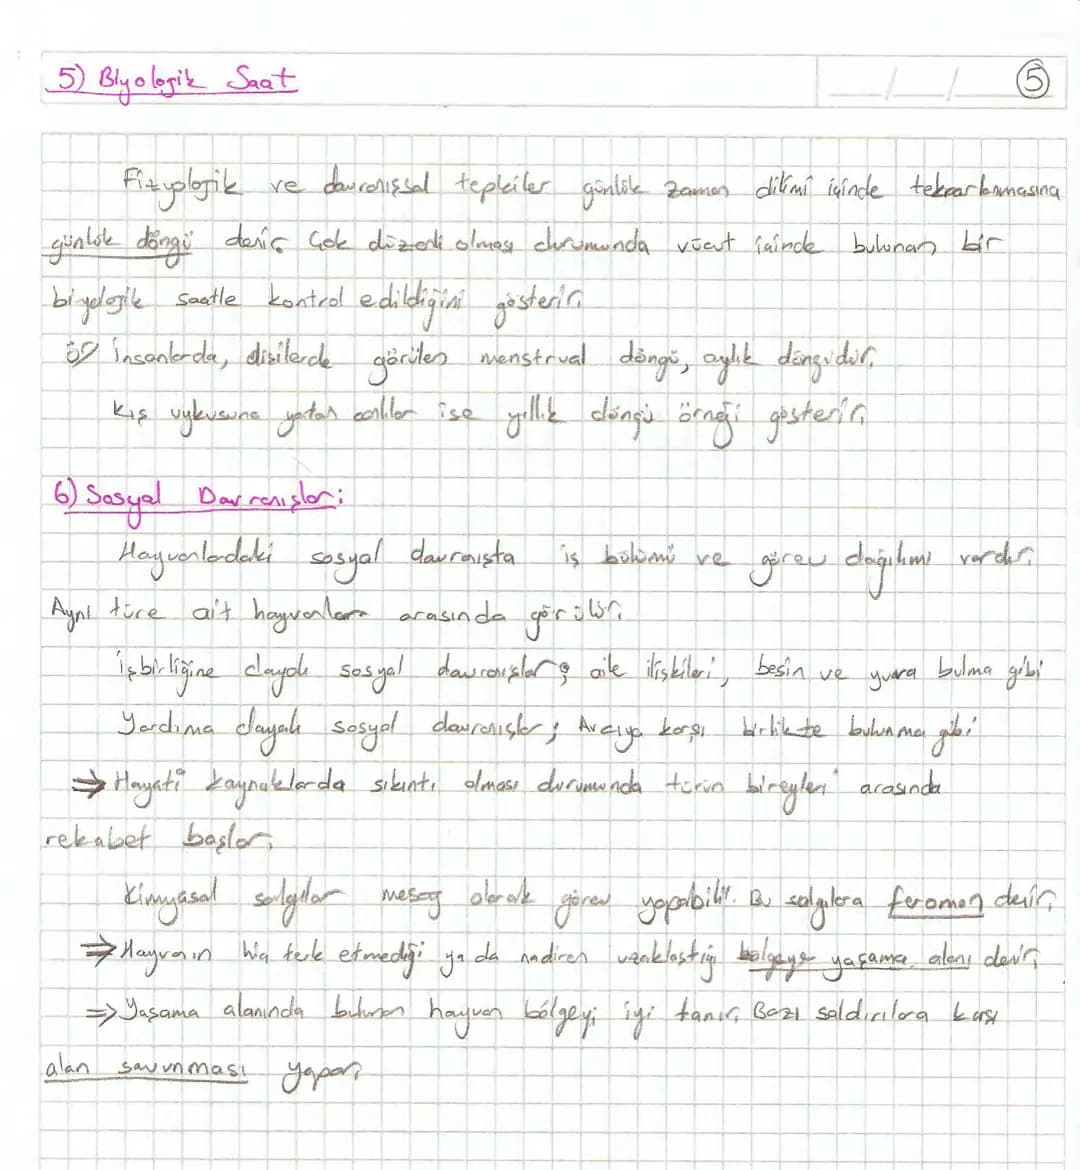 5) Biyologik Saat
5
Fizyolojik ve davranışsal tepkiler günlük zaman dilimi içinde tekrarlanmasına
günlük döngü denir. Çok düzenli olması durumunda vücut içinde bulunan bir
biyolojik saatle kontrol edildiğini gösterir.
ör/ İnsanlarda, dişilerde görülen menstrual döngü, aylık döngüdür.
Kış uykusuna yatan canlılar ise yıllık döngü örneği gösterir.
6) Sosyal Davranışlar:
Hayvanlardaki sosyal davranışta iş bölümü ve görev dağılımı vardır.
Aynı türe ait hayvanlar arasında görülür.
işbirliğine dayalı sosyal davranışlar; aile ilişkileri, besin ve yuva bulma gibi
Yardıma dayalı sosyal davranışlar; Avcıya karşı birlikte bulunma gibi
⇒ Hayati kaynaklarda sıkıntı olması durumunda türün bireyleri arasında
rekabet başlar.
Kimyasal salgılar mesaj olarak görev yapabilir. Bu salgılara feromon denir.
⇒ Hayvanın hiç terk etmediği ya da nadiren uzaklaştığı bölgeye yaşama alanı denir.
⇒ Yaşama alanında bulunan hayvan bölgeyi iyi tanır. Bazı saldırılara karşı
alan savunması yapar.